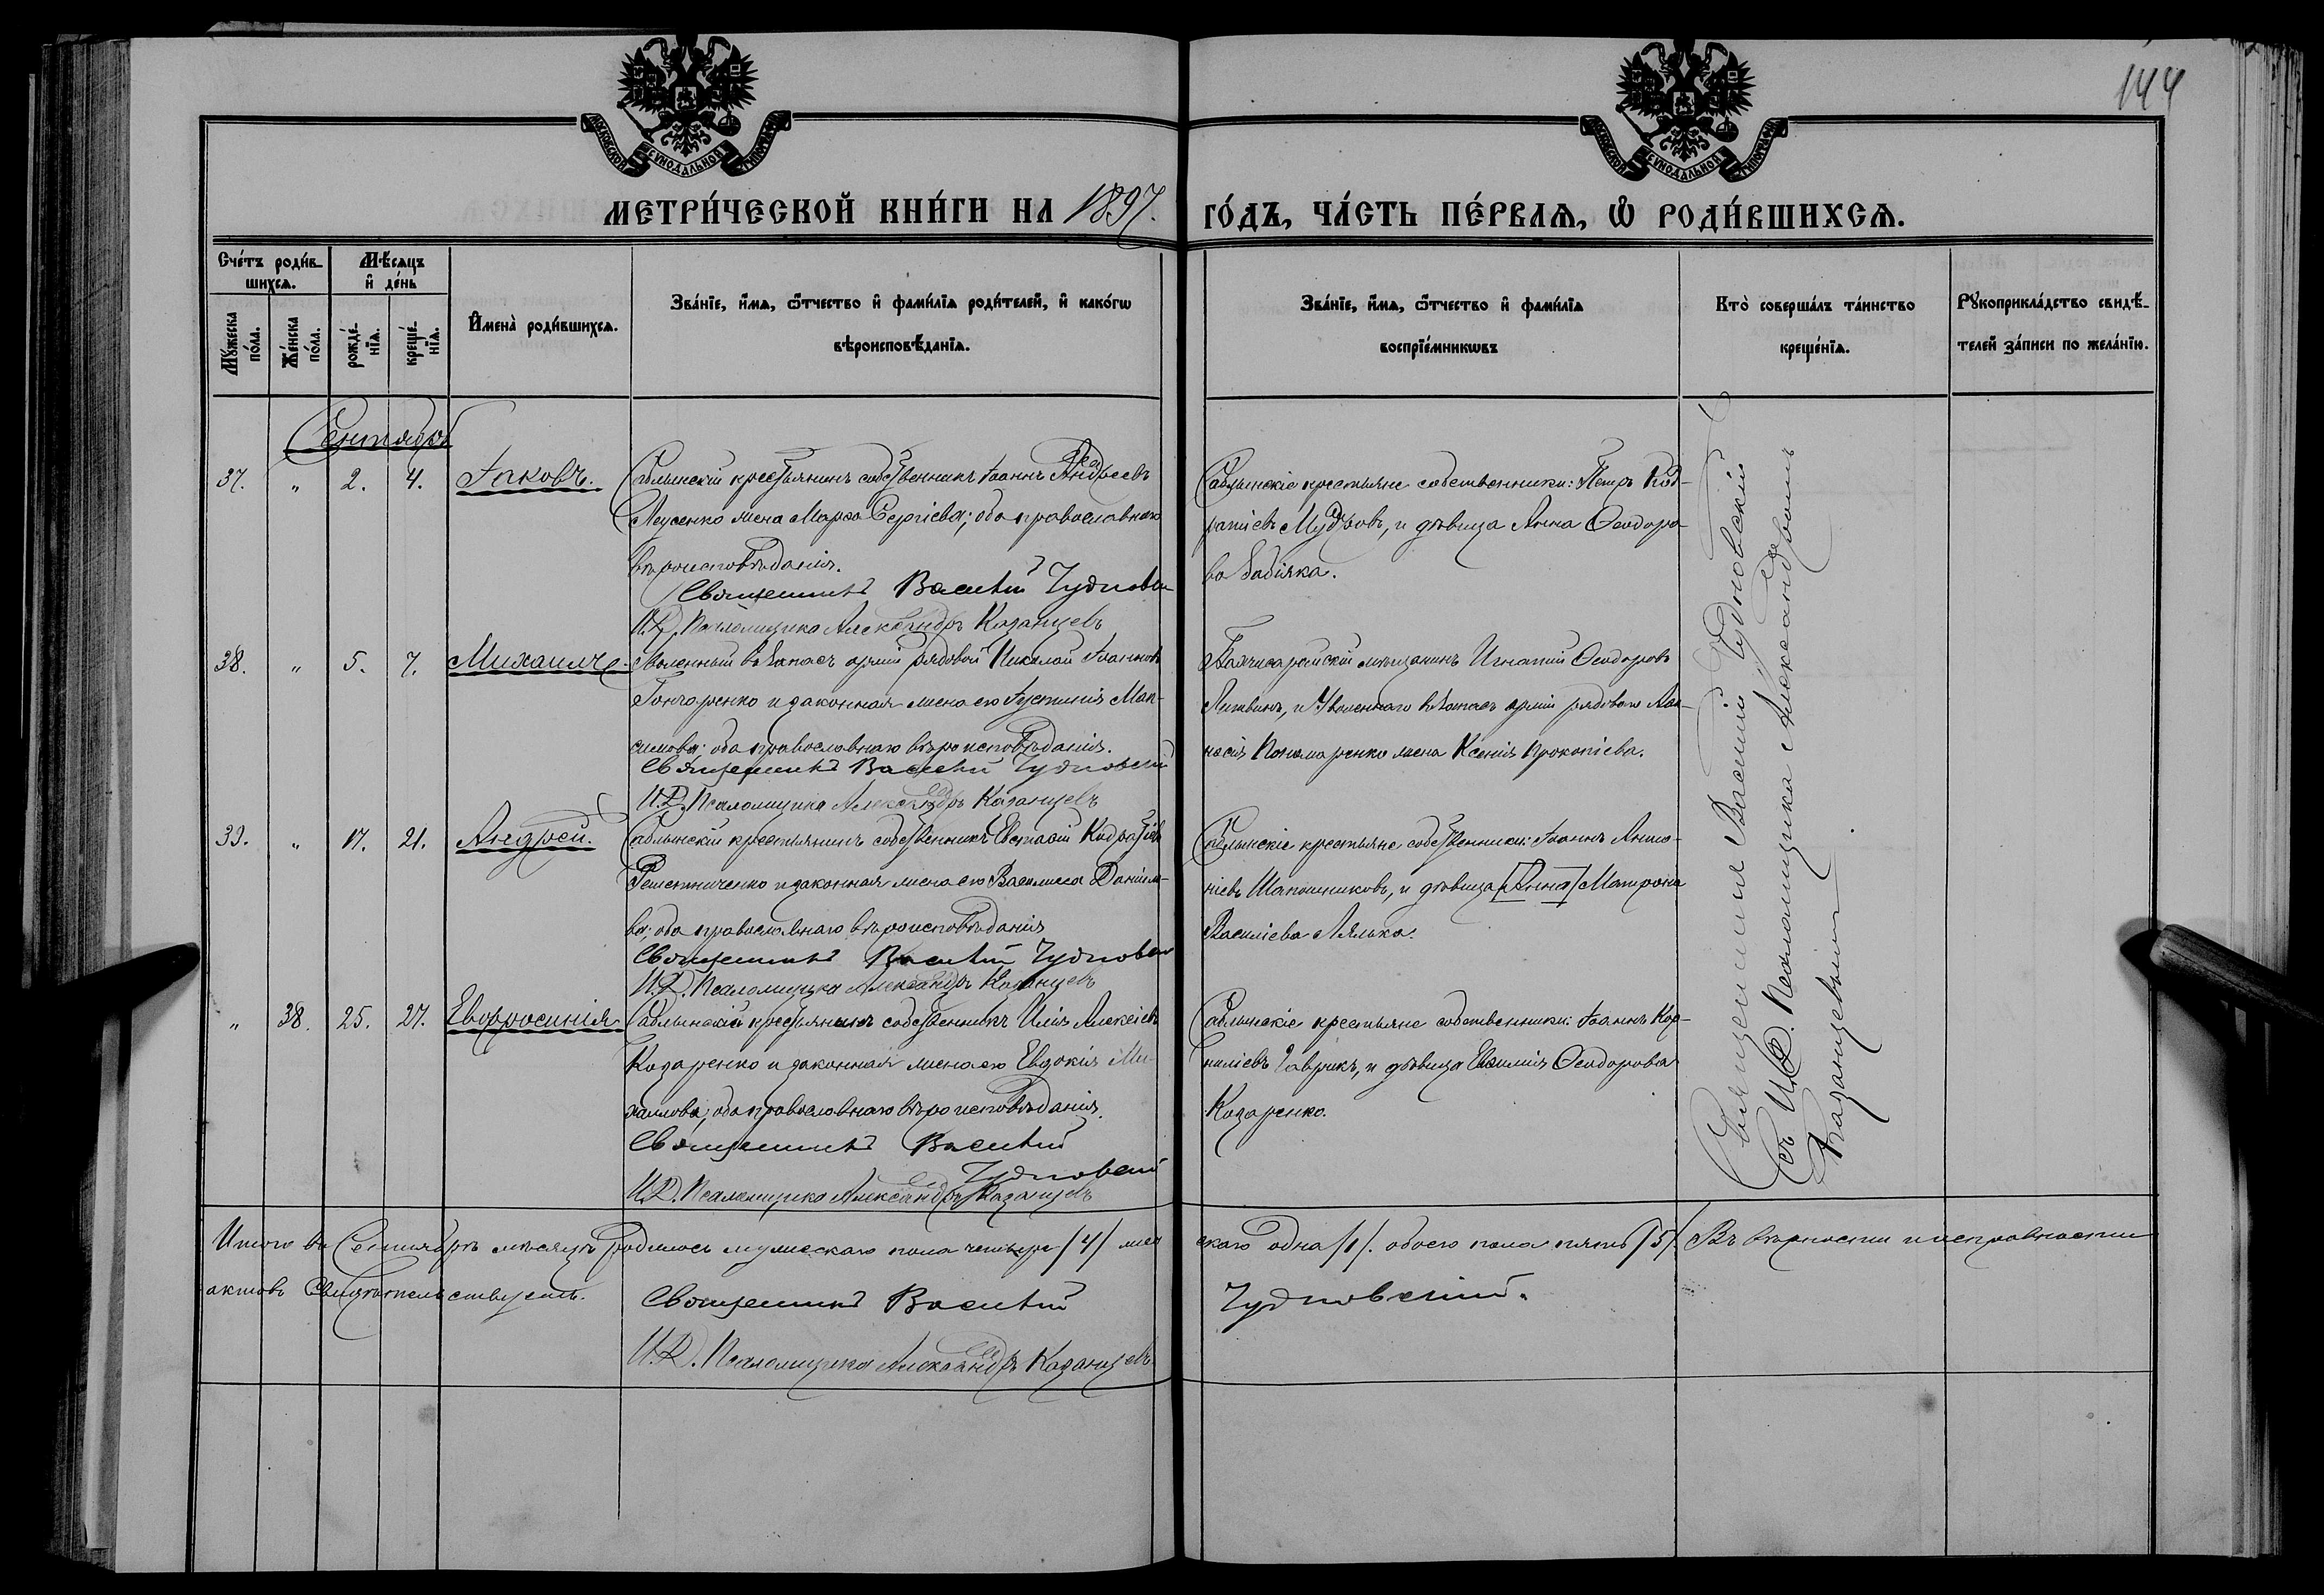 144
МОСКОВСКОЙ СУНОДАЛЬНОЙ ТИПОГРАФІИ
МОСКОВСКОЙ СУНОДАЛЬНОЙ ТИПОГРАФІИ
МЕТРИ́ЧЕСКОЙ КНИ́ГИ НА 1897. ГО́ДЪ, ЧА́СТЬ ПЕ́РВАѦ, Ѡ РОДИ́ВШИХСѦ.
Сче́тъ роди́в-
шихсѧ.
Мѣ́сѧцъ
и҆ де́нь
Мꙋ́жеска
по́ла.
Же́нска
по́ла.
рожде́-
нїѧ.
креще́-
нїѧ.
И҆мена̀ роди́вшихсѧ.
Зва́нїе, и҆́мѧ, ѻ҆́тчество и҆ фами́лїѧ роди́телей, и҆ како́гѡ
вѣроисповѣ́данїѧ.
Зва́нїе, и҆́мѧ, ѻ҆́тчество и҆ фами́лїѧ
воспрїе́мникѡвъ
Кто̀ соверша́лъ та́инство
креще́нїѧ.
Рꙋкоприкла́дство свидѣ́-
телей за́писи по жела́нїю.
Сентябрь
37. " 2. 4. Іаковъ.
Саблынскій крестьянинъ собственникъ Іоаннъ Андреевъ
жена Марѳа Сергіева; оба православнаго
вѣроисповѣданія.
Священникъ Василій Чудновскій
И.Д. Псаломщика Александръ Казанцевъ
Саблынскіе крестьяне собственники: Петръ Код-
ратіевъ Мудровъ, и дѣвица Анна Ѳеодоро-
ва Забіяка.
38. " 5. 7. Михаилъ
Уволенный въ запасъ арміи рядовой Николай Іоанновъ
Гончаренко и законная жена его Іустинія Мак-
симова; оба православнаго вѣроисповѣданія.
Священникъ Василій Чудновскій
И.Д. Псаломщика Александръ Казанцевъ
Бахчисарайскій мѣщанинъ Игнатій Ѳеодоровъ
Литвинъ, и Уволеннаго въ запасъ арміи рядоваго Аѳа-
насія Пономаренко жена Ксенія Прокопіева.
39. " 17. 21. Андрей.
Саблынскій крестьянинъ собственникъ Евстафій Кодратіевъ
Решетниченко и законная жена его Василиса Даніило-
ва; оба православнаго вѣроисповѣданія
Священникъ Василій Чудновскій
И.Д. Псаломщика Александръ Казанцевъ
Саблынскіе крестьяне собственники: Іоаннъ Анто-
ніевъ Шапошниковъ, и дѣвица [Анна] Матрона
Василіева Лялька.
" 38. 25. 27. Евфросинія
Саблынскій крестьянинъ собственникъ Илія Алексіевъ
Козаренко и законная жена его Евдокія Ми-
хаилова; оба православнаго вѣроисповѣданія.
Священникъ Василій
Чудновскій
И.Д. Псаломщика Александръ Казанцевъ
Саблынскіе крестьяне собственники: Іоаннъ Кор-
ниліевъ Гаврикъ, и дѣвица Евѳимія Ѳеодорова
Козаренко.
Священникъ Василій Чудновскій
съ И.Д. Псаломщика Александромъ
Казанцевымъ
Итого въ Сентябрѣ мѣсяцѣ родилось мужескаго пола четыре /4/ жен скаго одна /1/. обоего пола пять /5/. Въ вѣрности и исправности
актовъ свидѣтельствуемъ.
Священникъ Василій Чудновскій.
И.Д. Псаломщика Александръ Казанцевъ